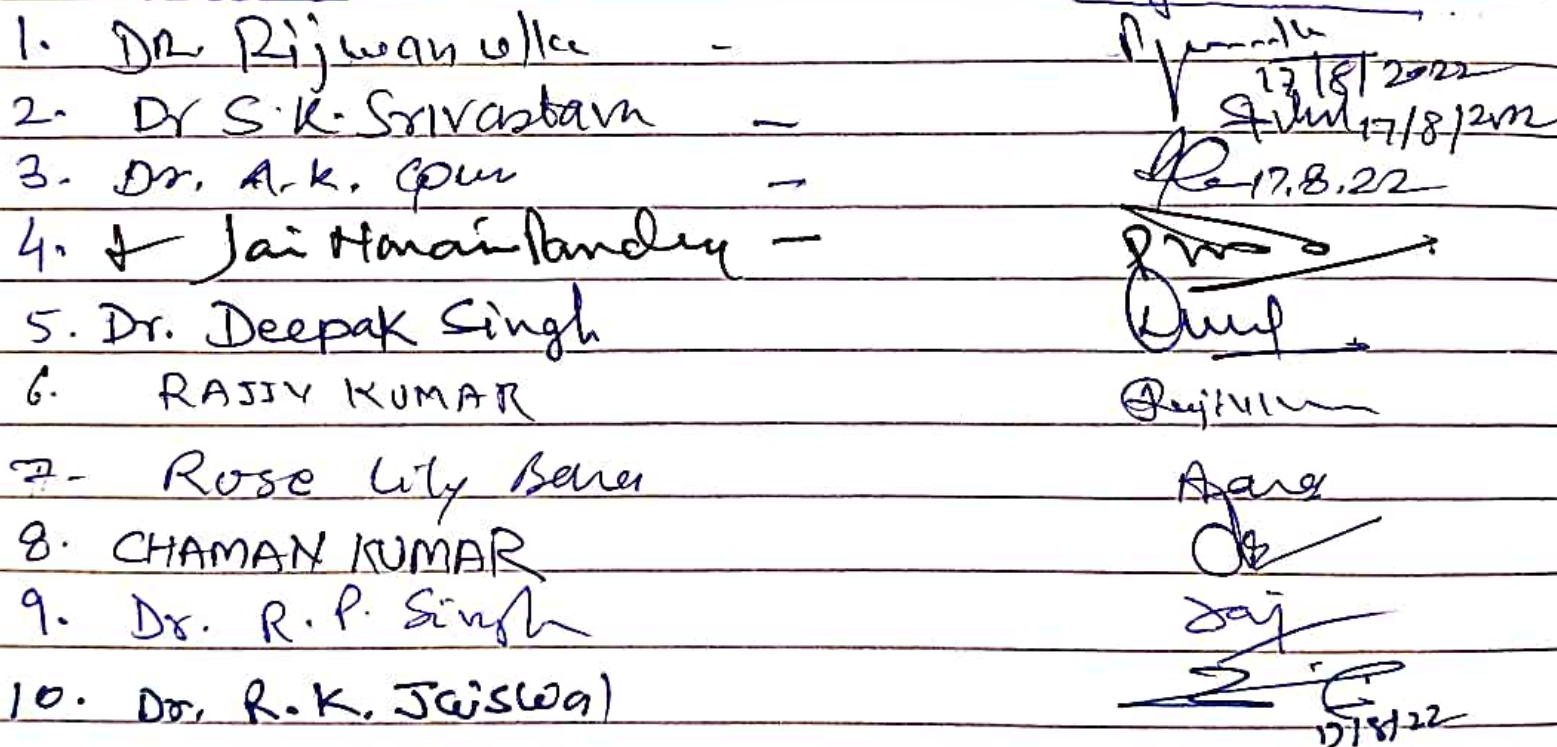 1. DR. Rijwan ulla - 17/8/2022
2. Dr S.K. Srivastava - 17/8/2022
3. Dr. A.K. - 17.8.22
4. Jai Narain Pandey -
5. Dr. Deepak Singh
6. RAJIV KUMAR
7- Rose Lily
8. CHAMAN KUMAR
9. Dr. R.P. Singh
10. Dr. R.K. Jaiswal 17/8/22